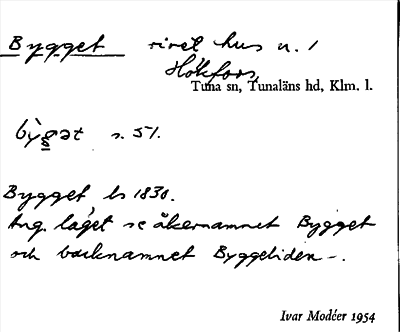 Bygget rivet hus n. 1
Hökfors,
Tuna sn, Tunaläns hd, Klm. l.
bỳgət s. 51.
Bygget, ls 1830.
Ang. läget se åkernamnet Bygget
och backnamnet Byggeliden –.
Ivar Modéer 1954